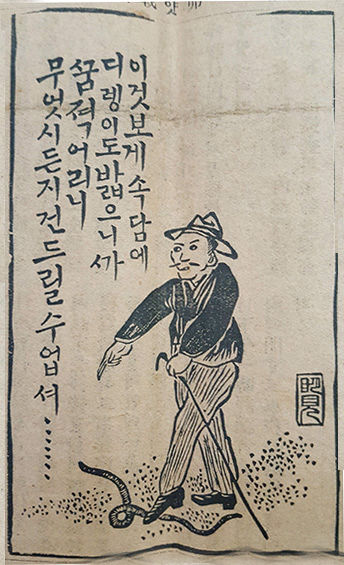 이것보게속담에
디렝이도밟으니ᄭᅡ
ᄭᅮᆷ젹어리니
무엇시든지건드릴수업셔……